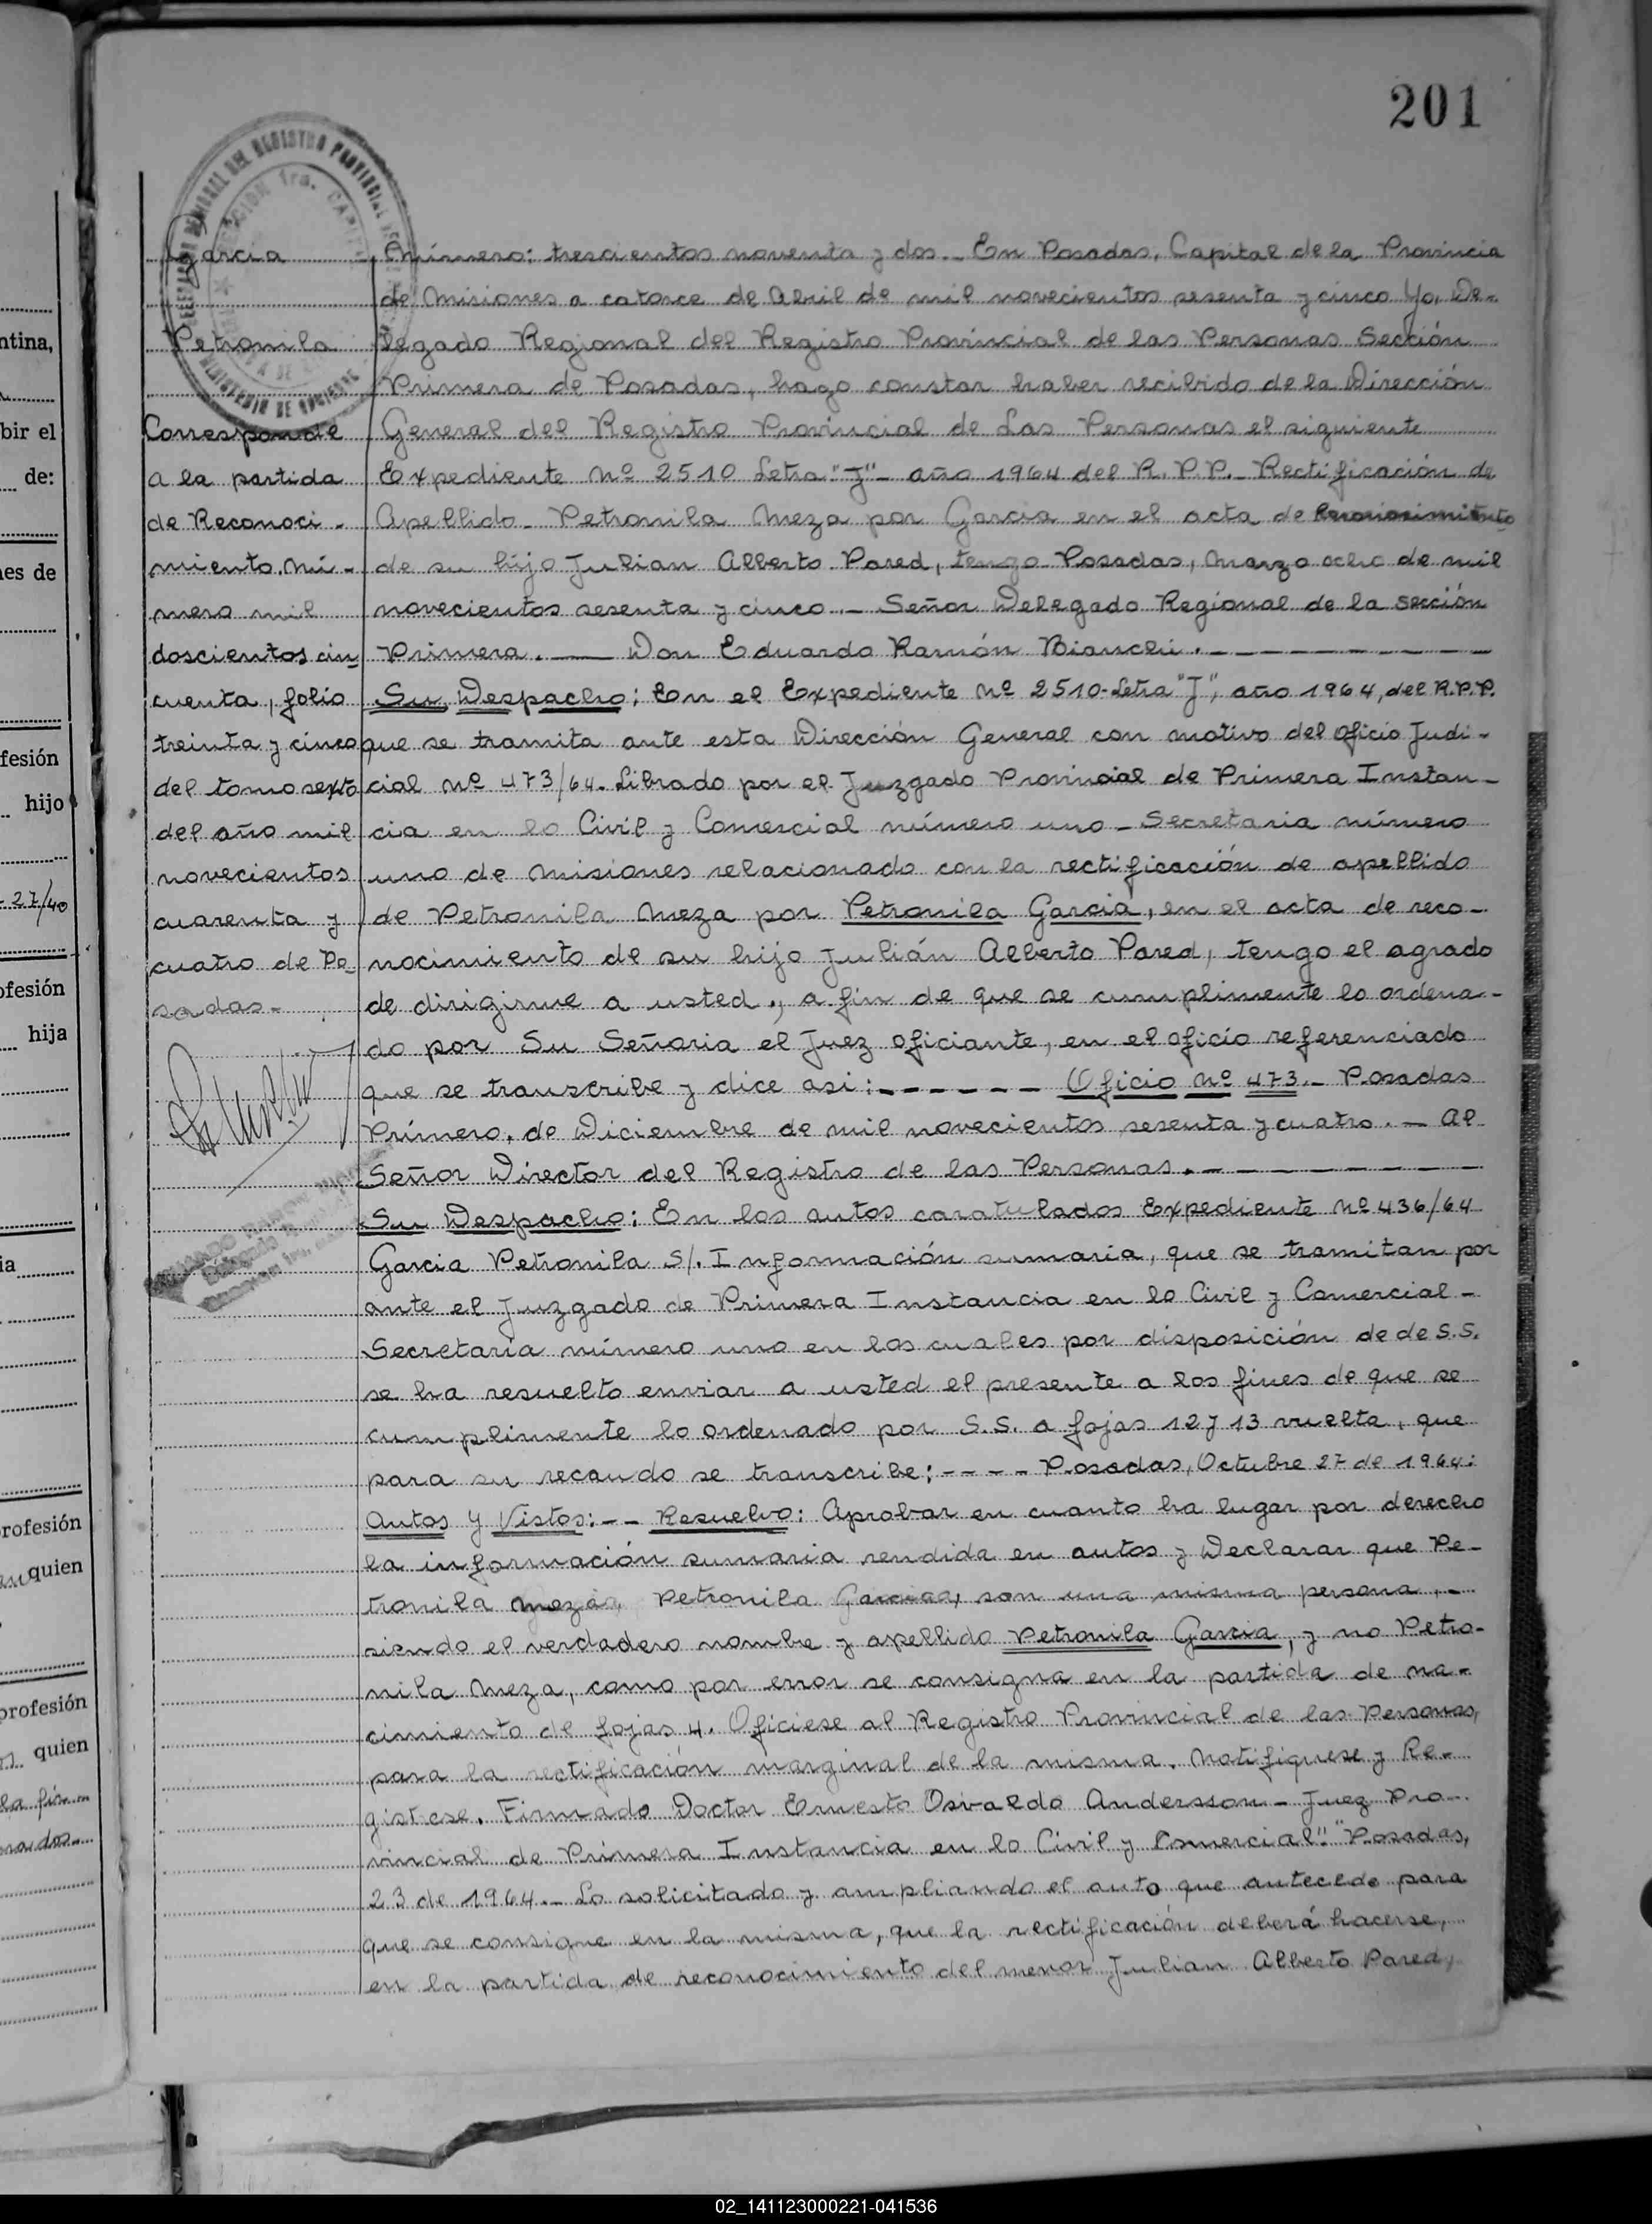 201
Garcia
Petronila
Corresponde
a la partida
de Reconoci-
miento nú-
mero mil
doscientos cin
cuenta, folio
treinta y cinco
del tomo sexto
del año mil
novecientos
cuarenta y
cuatro de Po
sadas.-
Número: trescientos noventa y dos.- En Posadas, Capital de la Provincia
de Misiones a catorce de Abril de mil novecientos sesenta y cinco Yo, De-
legado Regional del Registro Provincial de las Personas Sección
Primera de Posadas, hago constar haber recibido de la Dirección
General del Registro Provincial de Las Personas el siguiente
Expediente Nº 2510 Letra "J"- año 1964 del R.P.P.- Rectificación de
Apellido- Petronila Meza por Garcia en el acta de Reconocimiento
de su hijo Julian Alberto Pared, tengo Posadas, Marzo ocho de mil
novecientos sesenta y cinco.- Señor Delegado Regional de la Sección
Primera.— Don Eduardo Ramón Bianchi.-----------
Su Despacho: En el Expediente Nº 2510-Letra "J", año 1964, del R.P.P.
que se tramita ante esta Dirección General con motivo del oficio Judi-
cial Nº 473/64. Librado por el Juzgado Provincial de Primera Instan-
cia en lo Civil y Comercial número uno - Secretaria número
uno de Misiones relacionado con la rectificación de apellido
de Petronila Meza por Petronila Garcia, en el acta de reco-
nocimiento de su hijo Julián Alberto Pared, tengo el agrado
de dirigirme a usted., a fin de que se cumplimente lo ordena-
do por Su Señoria el Juez oficiante, en el oficio referenciado
que se transcribe y dice asi:------ Oficio Nº 473.- Posadas
Primero, de Diciembre de mil novecientos sesenta y cuatro.- Al
Señor Director del Registro de las Personas.-----------
Su Despacho: En los autos caratulados Expediente Nº 436/64
Garcia Petronila S/. Información sumaria, que se tramitan por
ante el Juzgado de Primera Instancia en lo Civil y Comercial-
Secretaría número uno en los cuales por disposición de de S.S.
se ha resuelto enviar a usted el presente a los fines de que se
cumplimente lo ordenado por S.S. a fojas 12 y 13 vuelta, que
para su recaudo se transcribe:---- Posadas, Octubre 27 de 1964:
Autos y Vistos:-- Resuelvo: Aprobar en cuanto ha lugar por derecho
la información sumaria rendida en autos y Declarar que Pe-
tronila Meza, Petronila Garcia, son una misma persona,-
siendo el verdadero nombre y apellido Petronila Garcia, y no Petro-
nila Meza, como por error se consigna en la partida de na-
cimiento de fojas 4. Oficiese al Registro Provincial de las Personas,
para la rectificación marginal de la misma. Notifiquese y Re-
gistese. Firmado Doctor Ernesto Osvaldo Andersson - Juez Pro-
vincial de Primera Instancia en lo Civil y Comercial". "Posadas,
23 de 1964.- Lo solicitado y ampliando el auto que antecede para
que se consigne en la misma, que la rectificación deberá hacerse,
en la partida de reconocimiento del menor Julian Alberto Pared,
ntina,
bir el
de:
nes de
fesión
hijo
27/40
ofesión
hija
ia
rofesión
quien
profesión
quien
la fir
02_141123000221-041536